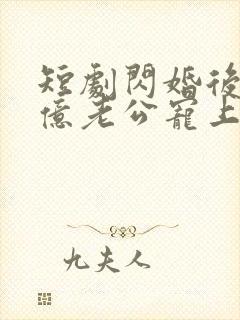 短劇閃婚後
億老公寵上
九夫人